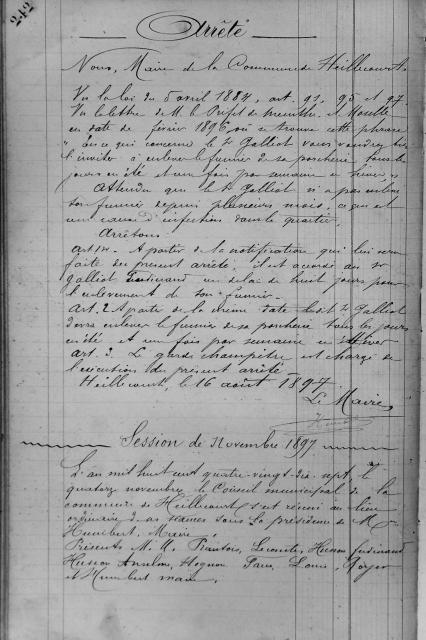 242
Arrêté
Nous, Maire de la Commune de Heillecourt,
Vu la loi du 5 avril 1884, art. 91, 95 et 97
Vu la lettre de M. le Préfet de Meurthe et Moselle
en date de février 1896, où se trouve cette phrase
"En ce qui concerne le Sr Galliot vous voudrez bien
l'inviter à enlever le fumier de sa porcherie tous les
jours en été et une fois par semaine en hiver"
Attendu que le Sr Galliot n'a pas enlevé
son fumier depuis plusieurs mois, ce qui est
une cause d'infection dans le quartier,
Arrêtons
Art. 1er. A partir de la notification qui lui sera
faite du présent arrêté, il est accordé au Sr
Galliot Ferdinand un délai de huit jours pour
l'enlèvement de son fumier.
Art. 2 A partir de la même date ledit Sr Galliot
devra enlever le fumier de sa porcherie tous les jours
en été et une fois par semaine en hiver
Art. 3. Le garde champêtre est chargé de
l'exécution du présent arrêté
Heillecourt, le 16 août 1897
Le Maire,
Session de Novembre 1897
L'an mil huit cent quatre-vingt-dix-sept, le
quatorze novembre le Conseil municipal de la
commune de Heillecourt s'est réuni au lieu
ordinaire de ses séances sous la présidence de M
Humbert, Maire,
Présents M. M. Lecomte, Husson Ferdinand
Husson Anselme, Hognon Louis, Royer
et Humbert maire.